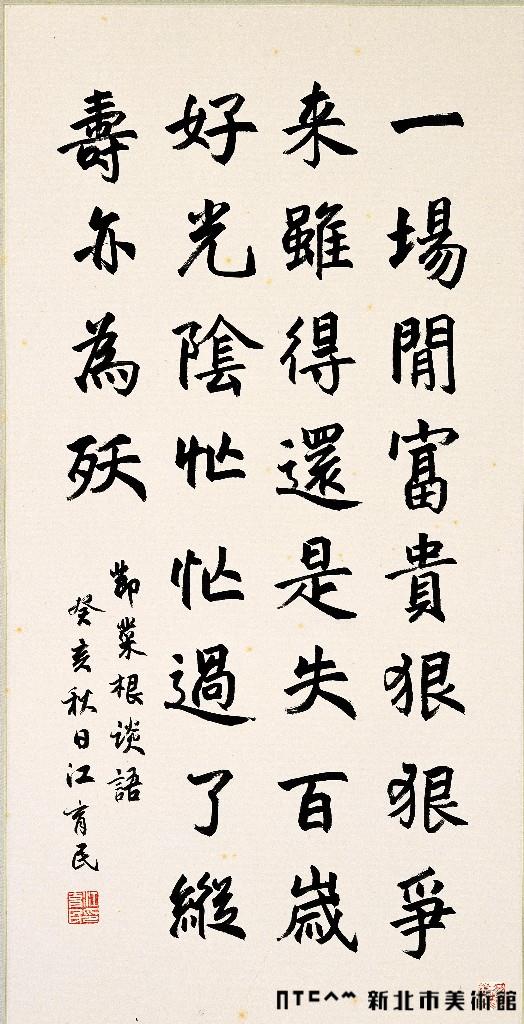 一場閒富貴狠狠爭
来雖得還是失百歲
好光陰忙忙過了縱
壽亦為殀
節菜根談語
癸亥秋日江育民
NTCAM 新北市美術館